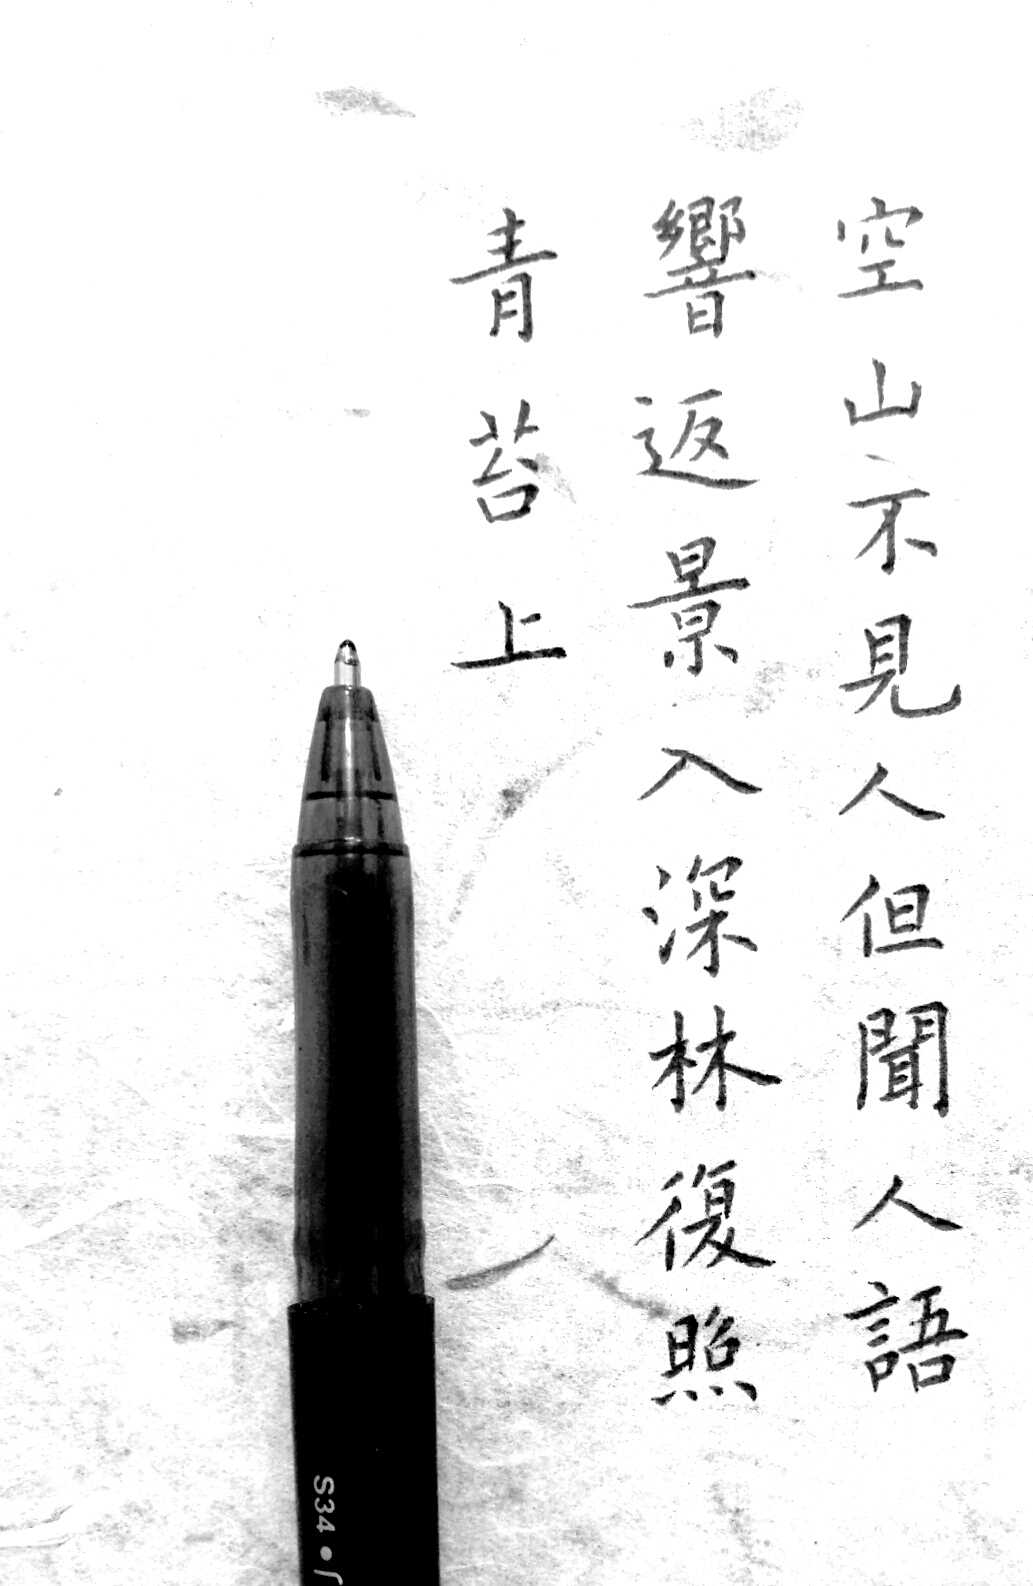 空山不見人但聞人語
響返景入深林復照
青苔上
S34